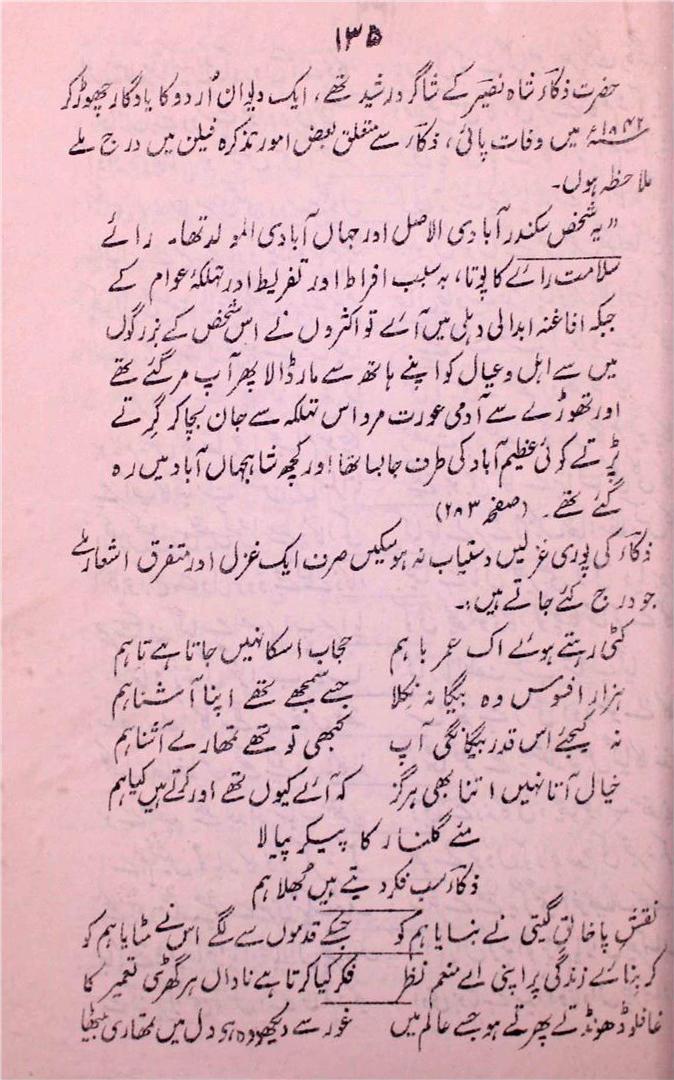 ۱۳۵
حضرت ذکاؔء شاہ نصیرؔ کے شاگرد رشید تھے، ایک دیوان اُردو کا یادگار چھوڑ کر
۱۸۴۲ء میں وفات پائی، ذکاؔء سے متعلق بعض امور تذکرہ فیلن میں درج ملے
ملاحظہ ہوں۔
"یہ شخص سکندر آبادی الاصل اور جہاں آبادی المولد تھا۔ رائے
سلامت رائے کا پوتا، بہ سبب افراط اور تفریط اور تہلکۂ عوام کے
جبکہ افاغنہ ابدالی دہلی میں آئے تو اکثروں نے اس شخص کے بزرگوں
میں سے اہل و عیال کو اپنے ہاتھ سے مار ڈالا پھر آپ مر گئے تھے
اور تھوڑے سے آدمی عورت مرد اس تہلکہ سے جان بچا کر گرتے
پڑتے کوئی عظیم آباد کی طرف جا بسا تھا اور کچھ شاہجہاں آباد میں رہ
گئے تھے۔ (صفحہ ۲۸۳)
ذکاؔء کی پوری غزلیں دستیاب نہ ہوسکیں صرف ایک غزل اور متفرق اشعار ملے
جو درج کئے جاتے ہیں:۔
کٹی رہتے ہوئے اک عمر باہم حجاب اسکا نہیں جاتا ہے تاہم
ہزار افسوس وہ بیگانہ نکلا جسے سمجھے تھے اپنا آشنا ہم
نہ کیجئے اس قدر بیگانگی آپ کبھی تو تھے تمھارے آشنا ہم
خیال آتا نہیں اتنا بھی ہرگز کہ آئے کیوں تھے اور کرتے ہیں کیا ہم
مئے گلنار کا پیکر پیالا
ذکاؔء سب فکر دیتے ہیں بُھلا ہم
نقشِ پا خالقِ گیتی نے بنایا ہم کو جسکے قدموں سے لگے اس نے مٹایا ہم کو
کر بنائے زندگی پر اپنی اے منعم نظر فکر کیا کرتا ہے ناداں ہر گھڑی تعمیر کا
غافلو ڈھونڈتے پھرتے ہو جسے عالم میں غور سے دیکھو وہ ہو دل میں تمھاری بیٹھا